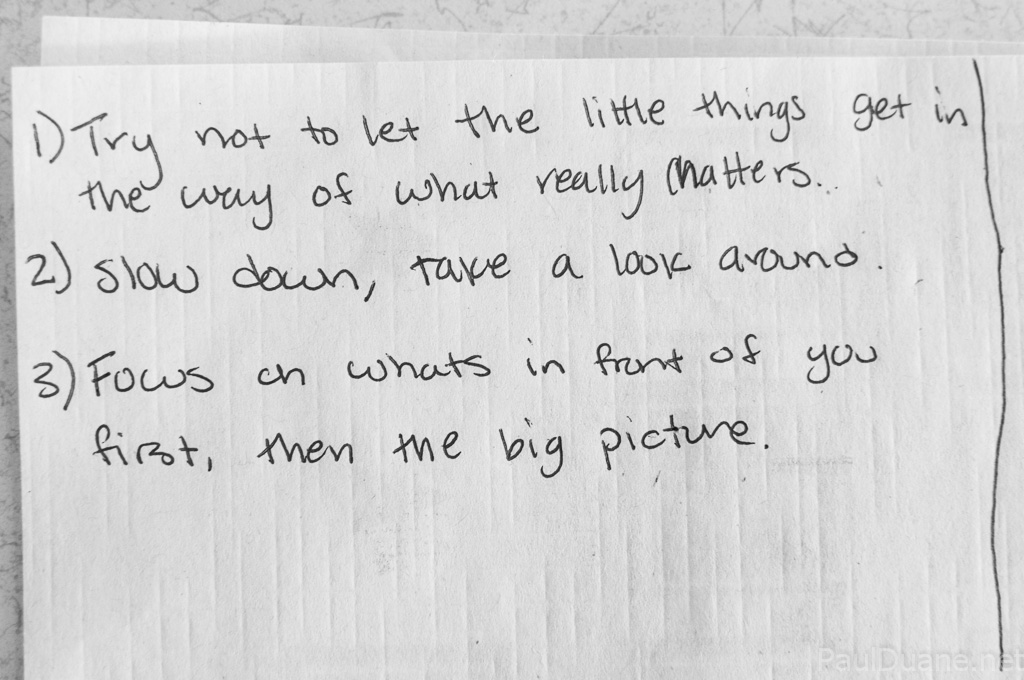 1) Try not to let the little things get in
the way of what really matters..
2) Slow down, take a look around.
3) Focus on whats in front of you
first, then the big picture.
PaulDuane.net